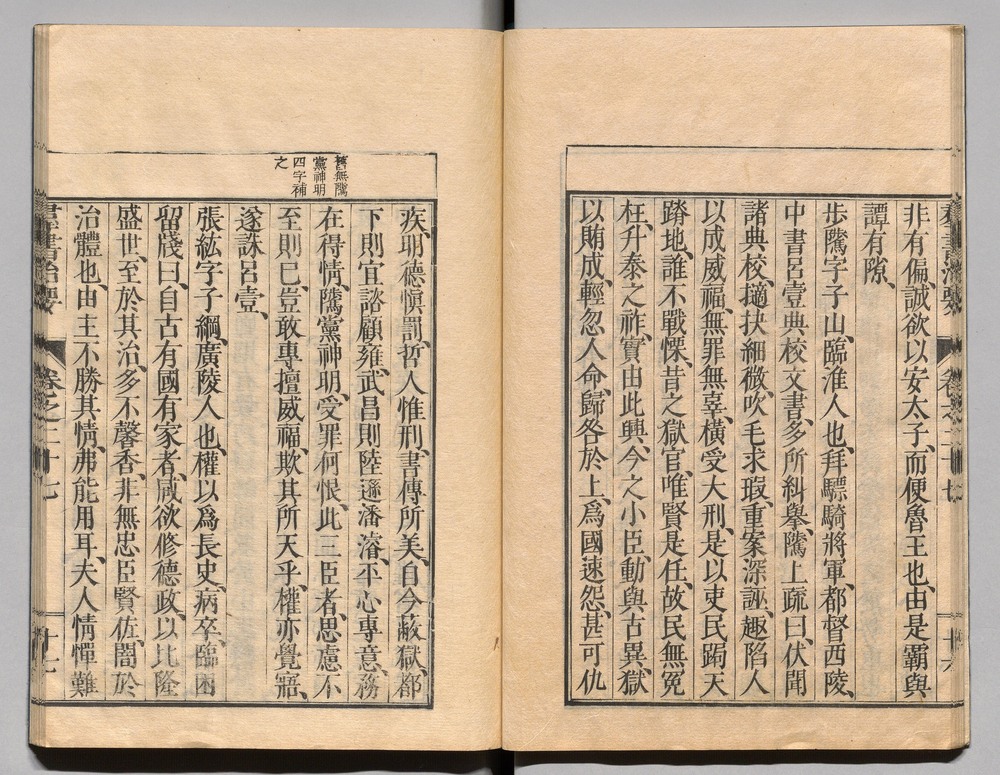 羣書治要 卷之二十七 十六
非有偏、誠欲以安太子、而便魯王也、由是霸與
譚有隙、
步騭字子山、臨淮人也、拜驃騎將軍、都督西陵、
中書呂壹典校文書、多所糾舉、騭上疏曰、伏聞
諸典校、擿抉細微、吹毛求瑕、重案深誣、趣陷人
以成威福、無罪無辜、橫受大刑、是以吏民跼天
蹐地、誰不戰慄、昔之獄官、唯賢是任、故民無冤
枉、升泰之祚、實由此興、今之小臣、動與古異、獄
以賄成、輕忽人命、歸咎於上、爲國速怨、甚可仇
疾、明德愼罰、哲人惟刑、書傳所美、自今蔽獄、都
下則宜諮顧雍、武昌則陸遜潘濬、平心專意、務
在得情、騭黨神明、受罪何恨、此三臣者、思慮不
至則已、豈敢專擅威福、欺其所天乎、權亦覺寤、
遂誅呂壹、
張紘字子綱、廣陵人也、權以爲長史、病卒、臨困
留牋曰、自古有國有家者、咸欲修德政、以比隆
盛世、至於其治、多不馨香、非無忠臣賢佐、闇於
治體也、由主不勝其情、弗能用耳、夫人情憚難
舊無騭
黨神明
四字補
之
羣書治要 卷之二十七 十七